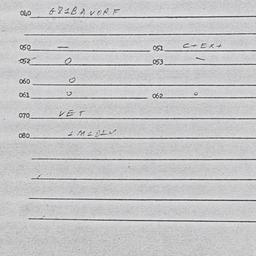 040 G81BAVORF
050 — 051 C+EX+
052 0 053 -
060 0
061 0 062 0
070 VET
080